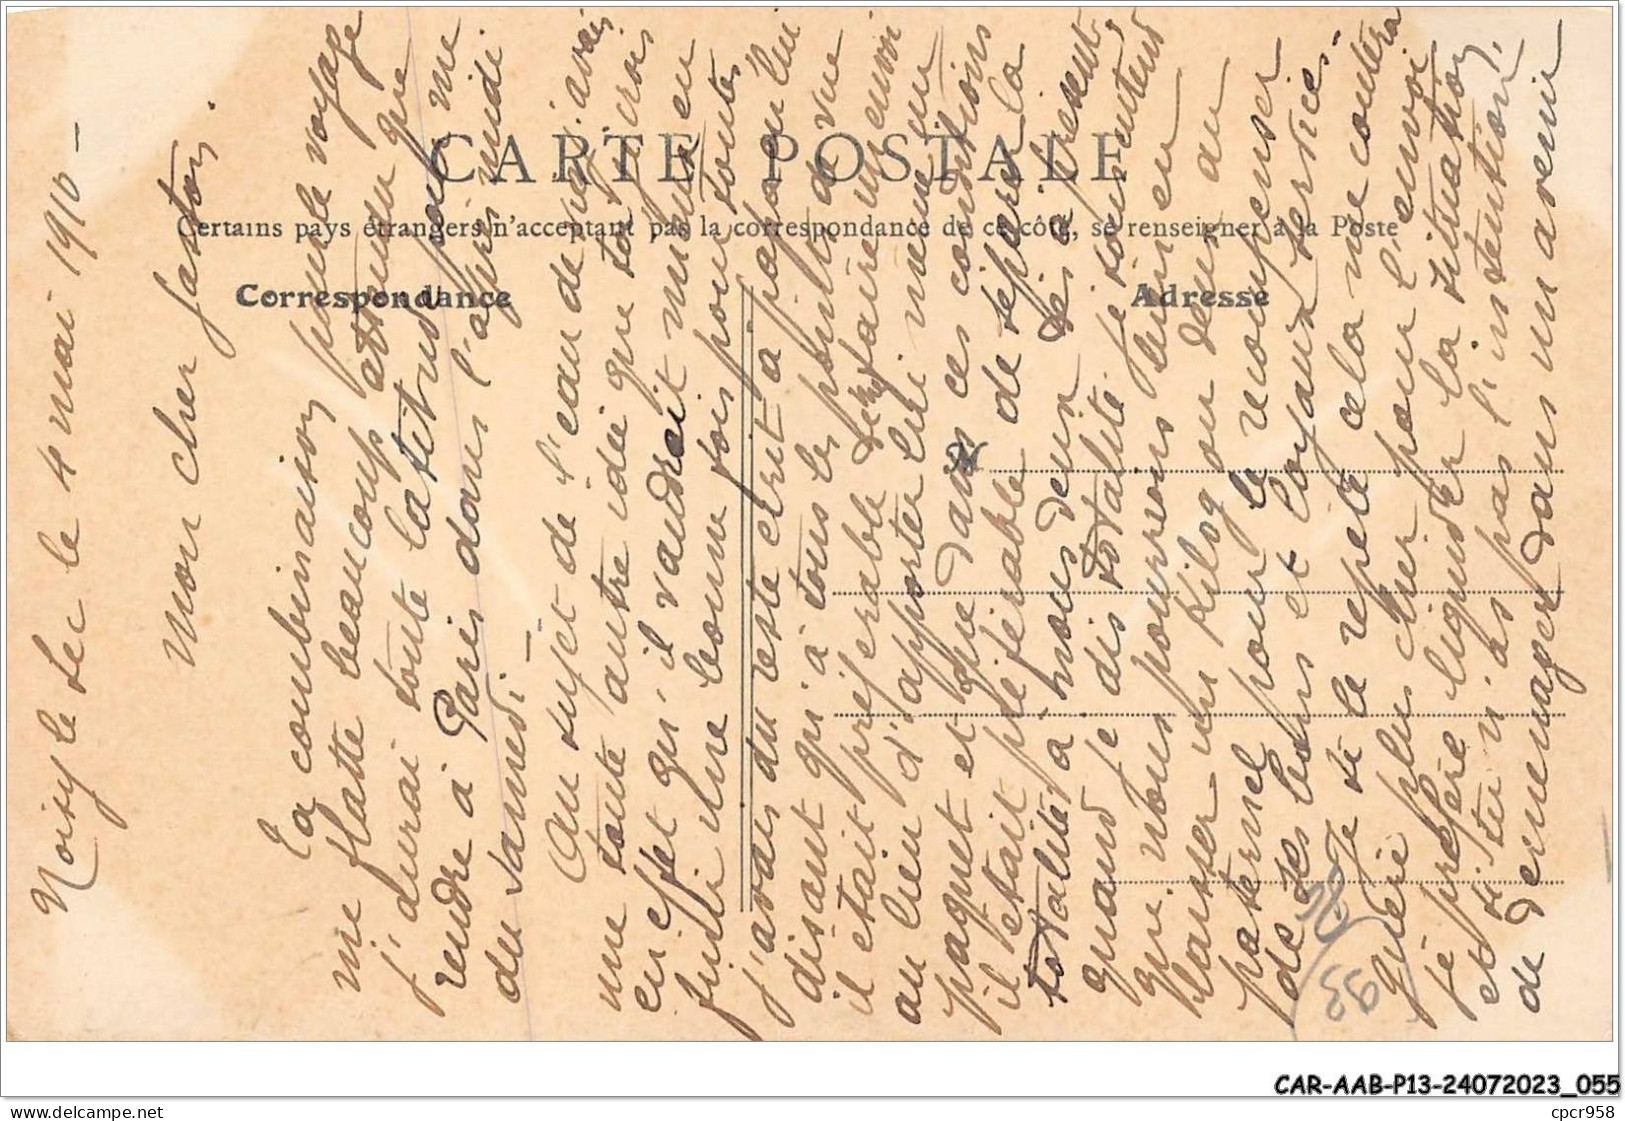 CARTE POSTALE
Certains pays étrangers n'acceptant pas la correspondance de ce côté, se renseigner à la Poste
Correspondance
Adresse
M
Noisy le Sec le 4 mai 1910 -
Mon cher Gaston.
La combinaison pour le voyage
me flatte beaucoup attendu que
j'aurai toute latitude pour me
rendre à Paris dans l'après midi
du Samedi. -
Au sujet de l'eau de noix j'avais
une toute autre idée que toi, je crois
en effet qu'il vaudrait mieux en
finir une bonne fois pour toutes
j'avais du reste écrit à papa en lui
disant qu'à tous les points de vue
il était préférable de faire un envoi
au lieu d'apporter lui même un
paquet et que dans ces conditions
il était préférable de séparer la
totalité à nous deux dès à présent,
quand je dis totalité je sous entend
que nous pourrons bien en
laisser un Kilog ou deux au
paternel pour le récompenser
de ses bons et loyaux services. -
Je te le répète cela me coutera
guère plus cher pour l'envoi
je préfère liquider la situation,
et si tu n'as pas l'intention
de déménager dans un avenir
93
CAR-AAB-P13-24072023_055
www.delcampe.net
cpcr958